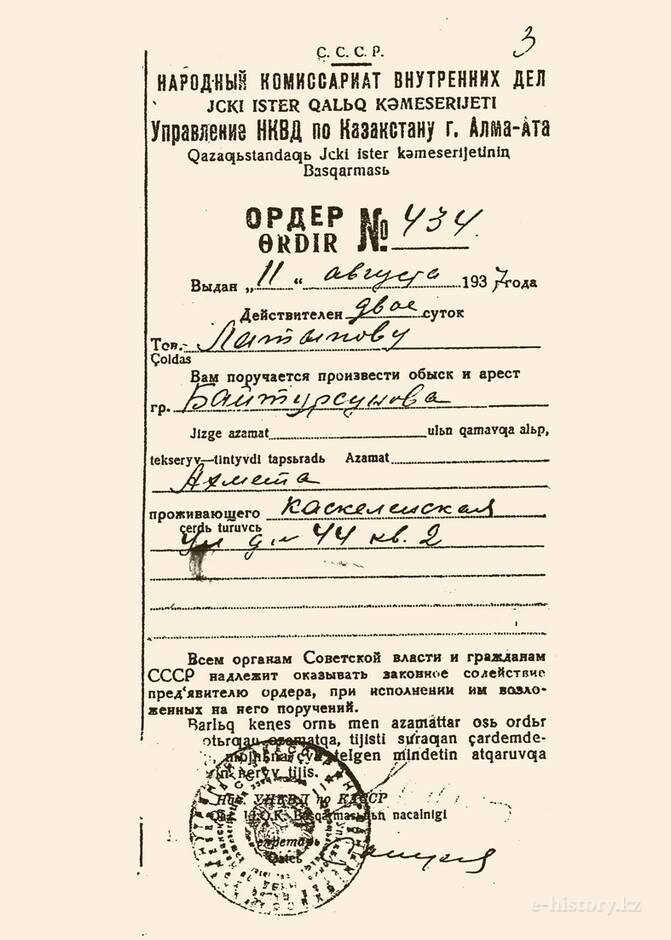 3
С. С. С. Р.
НАРОДНЫЙ КОМИССАРИАТ ВНУТРЕННИХ ДЕЛ
JCKI ISTER QALЬQ KƏMESERIJETI
Управление НКВД по Казакстану г. Алма-Ата
Qazaqьstandaqь Jcki ister kəmeserijetinin
Basqarmasь
ОРДЕР № 434.
ɵRDIR
Выдан „11“ августа 1937 года
Действителен двое суток
Тов. Латыпову
Çoldas
Вам поручается произвести обыск и арест
гр. Байтурсунова
Jizge azamat ulьn qamavqa alьp,
tekseryv—tintyvdi tapsьradь Azamat
Ахмета
проживающего Каскеленская
çerdь turuvcь
ул д м 44 кв. 2
Всем органам Советской власти и гражданам
СССР надлежит оказывать законное солействие
пред‘явителю ордера, при исполнении им возло-
женных на него поручений.
Barlьq kenes ornь men azamattar osь ordьr
azamatqa, tijisti suraqan çardemde-
telgen mindetin atqaruvqa
tijis.
Нач. УНКВД по КАССР
Basqarmasьnьn nacalnigi
секретарь
e-history.kz